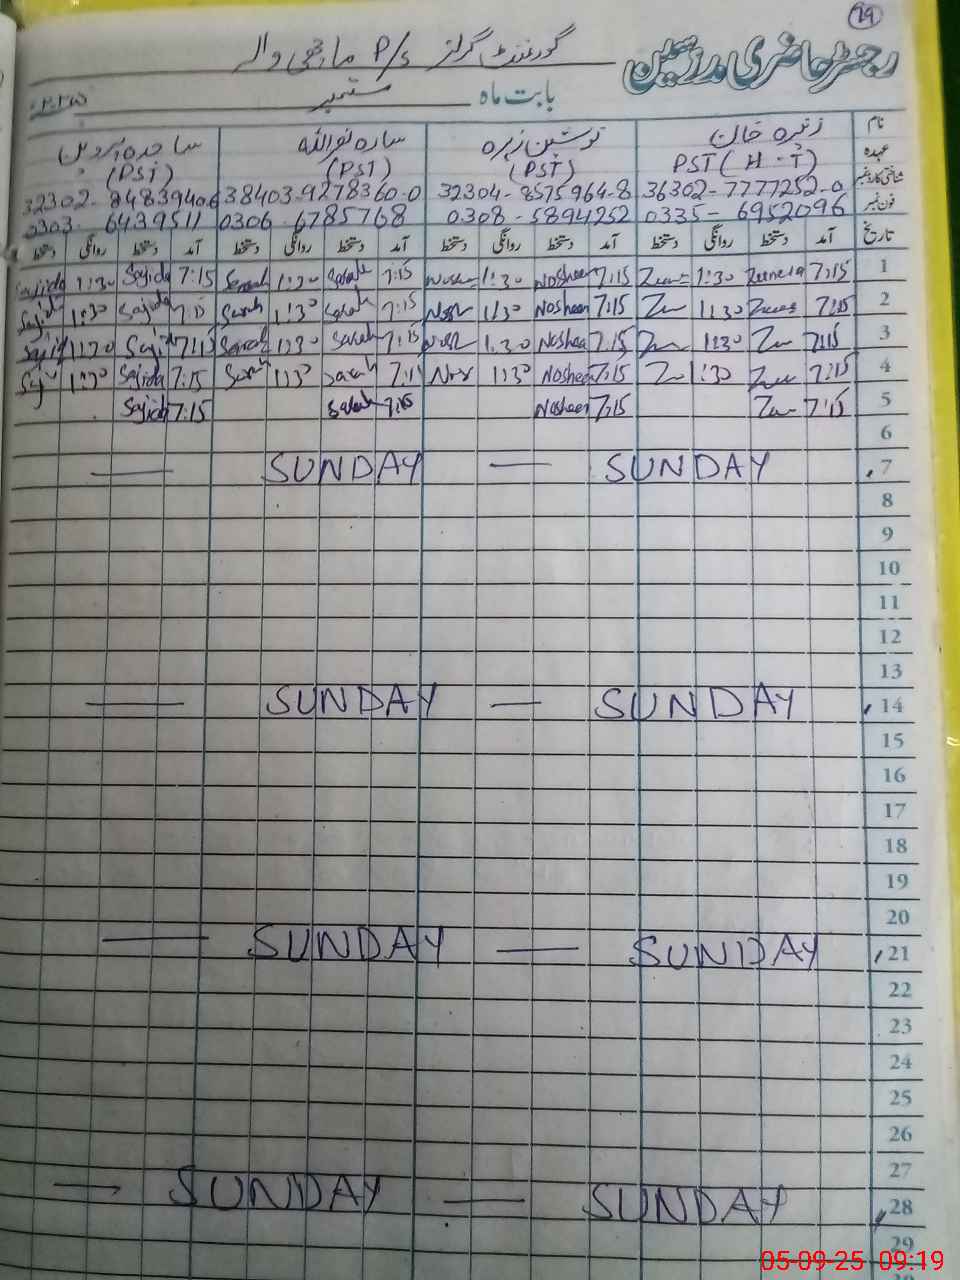 19
رجسٹر حاضری مدرسین گورنمنٹ گرلز P/S ماچھی والہ
بابت ماہ ستمبر ۲۰۲۵
نام زنیرہ خان نوشین زہرہ سارہ نوراللہ ساجدہ پروین
عہدہ PST (H.T) (PST) (PST) (PST)
شناختی کارڈ نمبر 36302-7777252-0 32304-8575964-8 38403-9278360-0 32302-2483940-6
فون نمبر 0335-6952096 0308-5894252 0306-6785768 0303-6439511
تاریخ آمد دستخط روانگی دستخط آمد دستخط روانگی دستخط آمد دستخط روانگی دستخط آمد دستخط روانگی دستخط
1 7:15 1:30 7:15 Nosheen 1:30 7:15 Sarah 1:30 Sarah 7:15 Sajida 1:30 Sajida
2 7:15 1:30 7:15 Nosheen 1:30 7:15 Sarah 1:30 Sarah 7:15 Sajida 1:30
3 7:15 1:30 7:15 Nosheen 1:30 7:15 Sarah 1:30 Sarah 7:15 1:30
4 7:15 1:30 7:15 Nosheen 1:30 Sarah 1:30 Sarah 7:15 Sajida 1:30
5 7:15 7:15 Nosheen 7:15 Sarah 7:15 Sajida
6
7 SUNDAY — SUNDAY —
8
9
10
11
12
13
14 SUNDAY — SUNDAY —
15
16
17
18
19
20
21 SUNDAY — SUNDAY —
22
23
24
25
26
27
28 SUNDAY — SUNDAY —
29
05-09-25 09:19